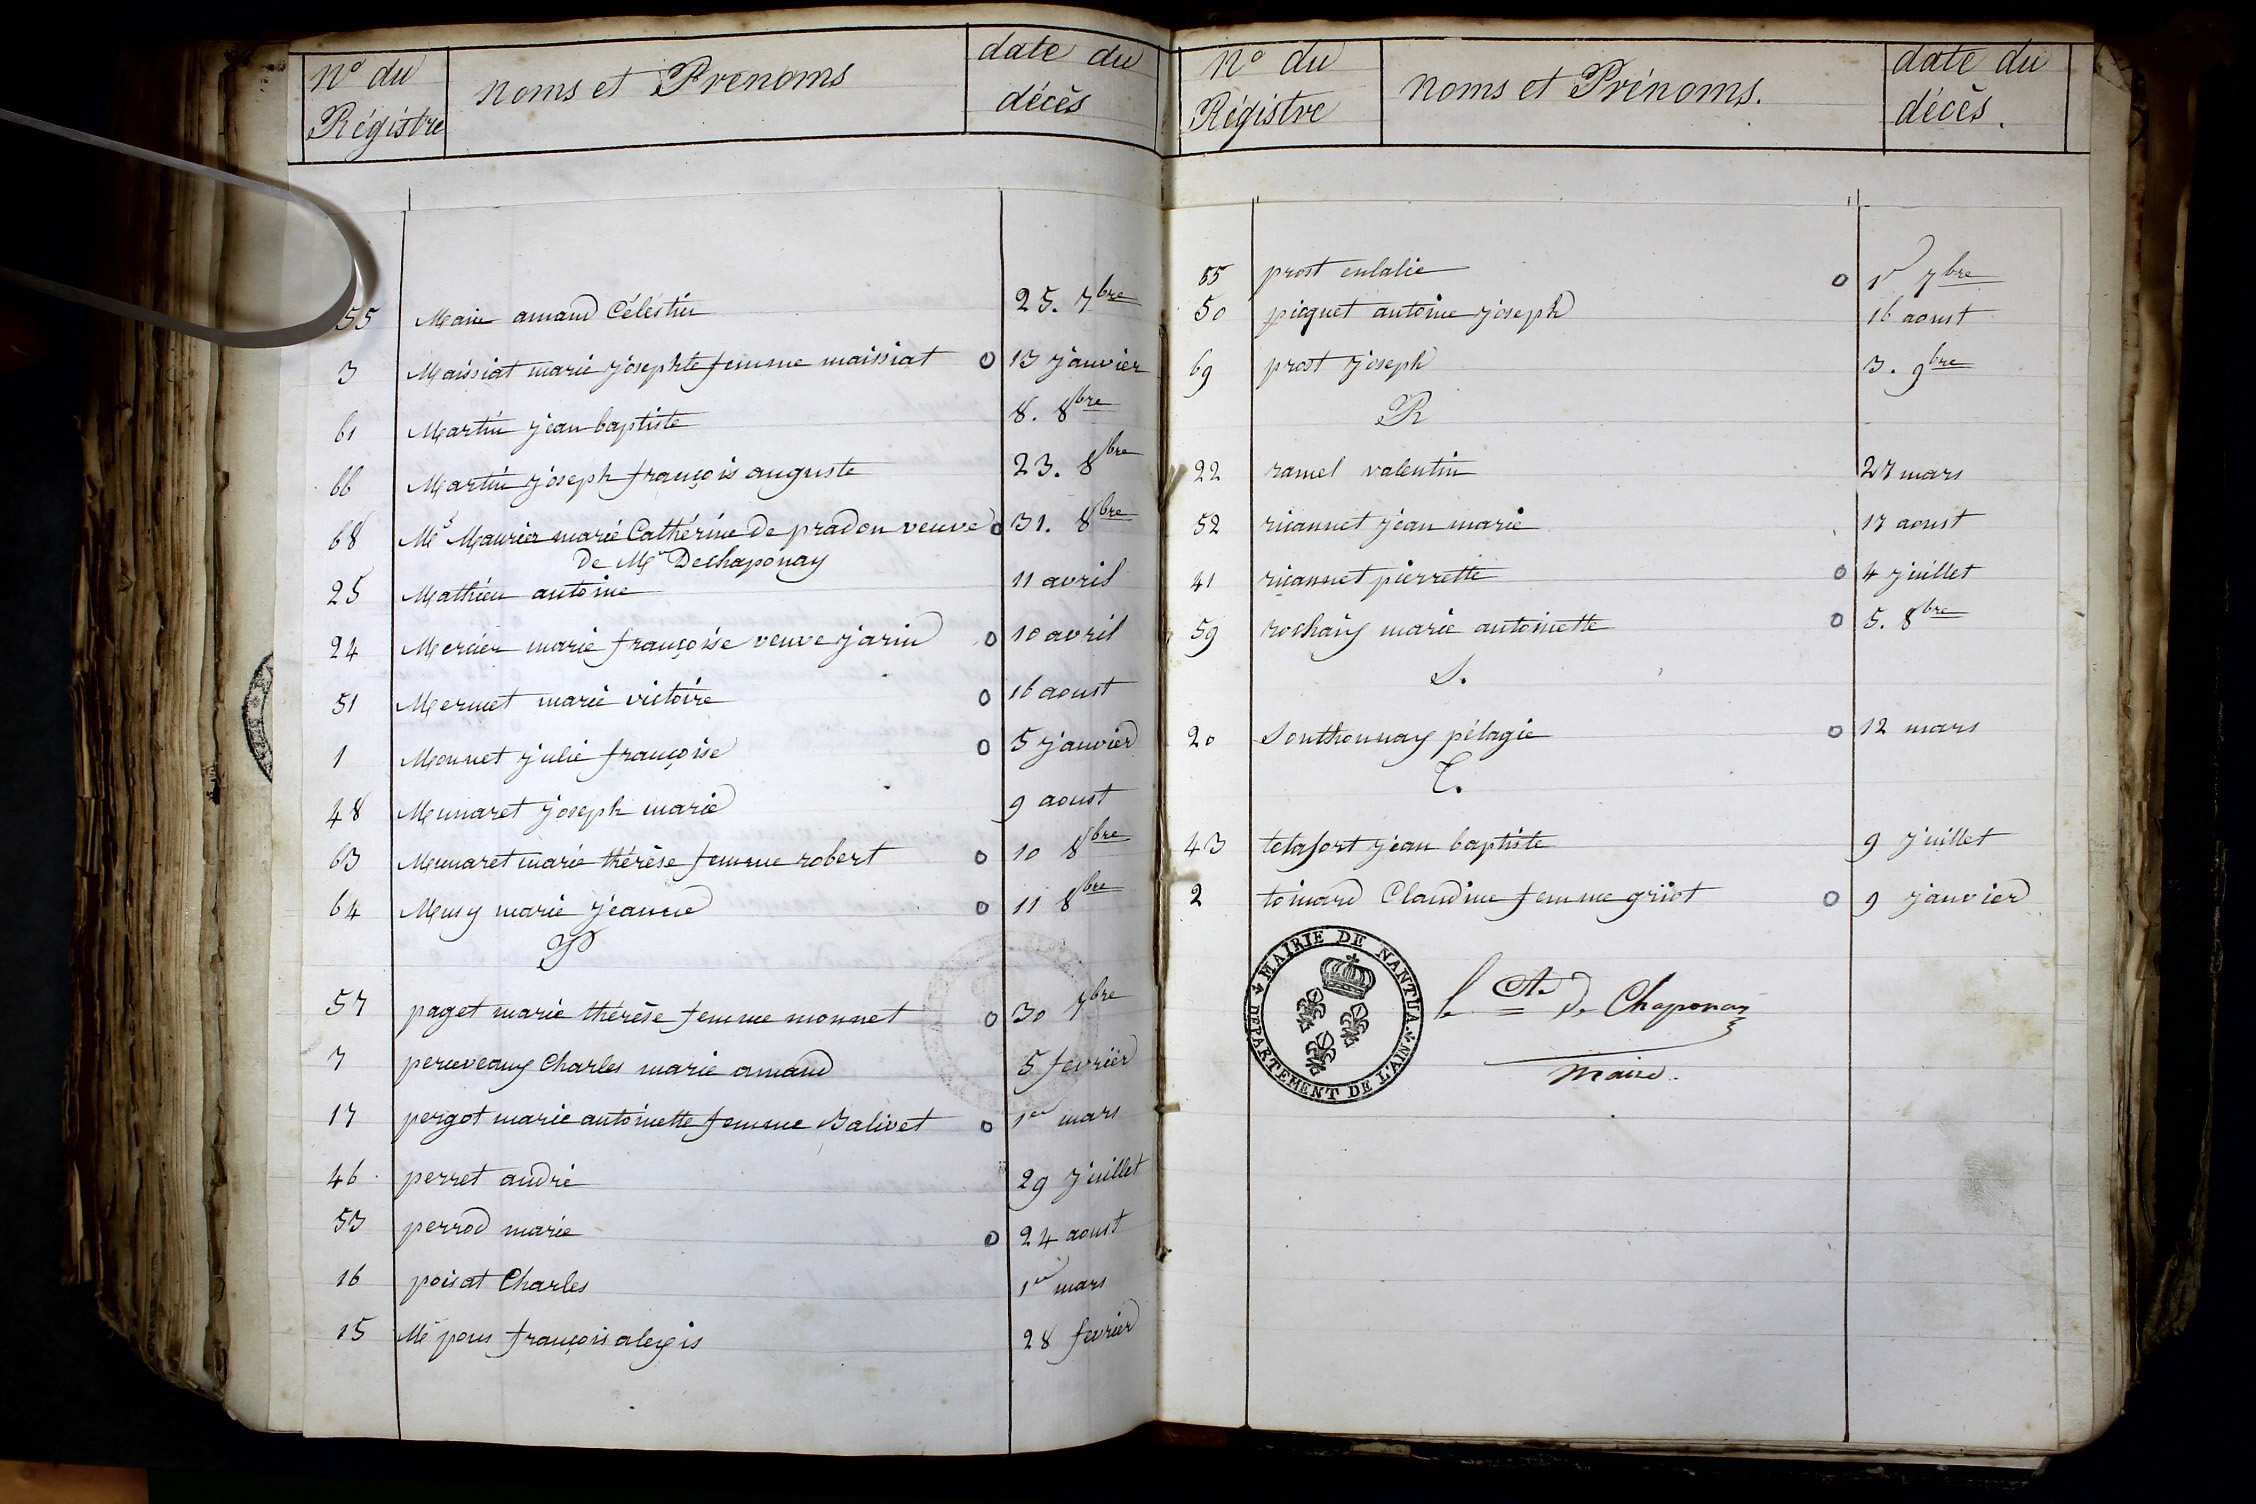 N° du
Régistre
noms et Prénoms
date du
décès
55 Main amand Célestin 25. 7bre
3 Maissiat marie josephte femme maissiat o 13 janvier
61 Martin jean baptiste 8. 8bre
66 Martin joseph françois auguste 23. 8bre
68 Me Maurier marie Cathérine de pradon veuve o 31. 8bre
de Mr Dechaponay
25 Mathieu antoine 11 avril
24 Mercier marie françoise veuve jarin o 10 avril
51 Mermet marie victoire o 16 aoust
1 Monnet julie françoise o 5 janvier
48 Munaret joseph marie 9 aoust
63 Munaret marie thérèse femme robert o 10 8bre
64 Musy marie jeanne o 11 8bre
P
57 paget marie thérèse femme monnet o 30 7bre
7 peruveaux Charles marie amand 5 fevrier
17 pergot marie antoinette femme Balivet o 1er mars
46 perret andré 29 juillet
53 perrod marie o 24 aoust
16 poisat Charles 1er mars
15 Mr pons françois alexis 28 fevrier
N° du
Régistre
noms et Prénoms.
date du
décès.
55 prost eulalie o 1r 7bre
50 picquet antoine joseph 16 aoust
69 prost joseph 3. 9bre
R
22 ramel valentin 27 mars
52 ricannet jean marie 17 aoust
41 ricannet pierrette o 4 juillet
59 rochaix marie antoinette o 5. 8bre
S.
20 Sonthonnax pélagie o 12 mars
T.
43 telafort jean baptiste 9 juillet
2 toinard Claudine femme griot o 9 janvier
MAIRIE DE NANTUA
DEPARTEMENT DE L'AIN
le Cte De Chaponay
Maire.